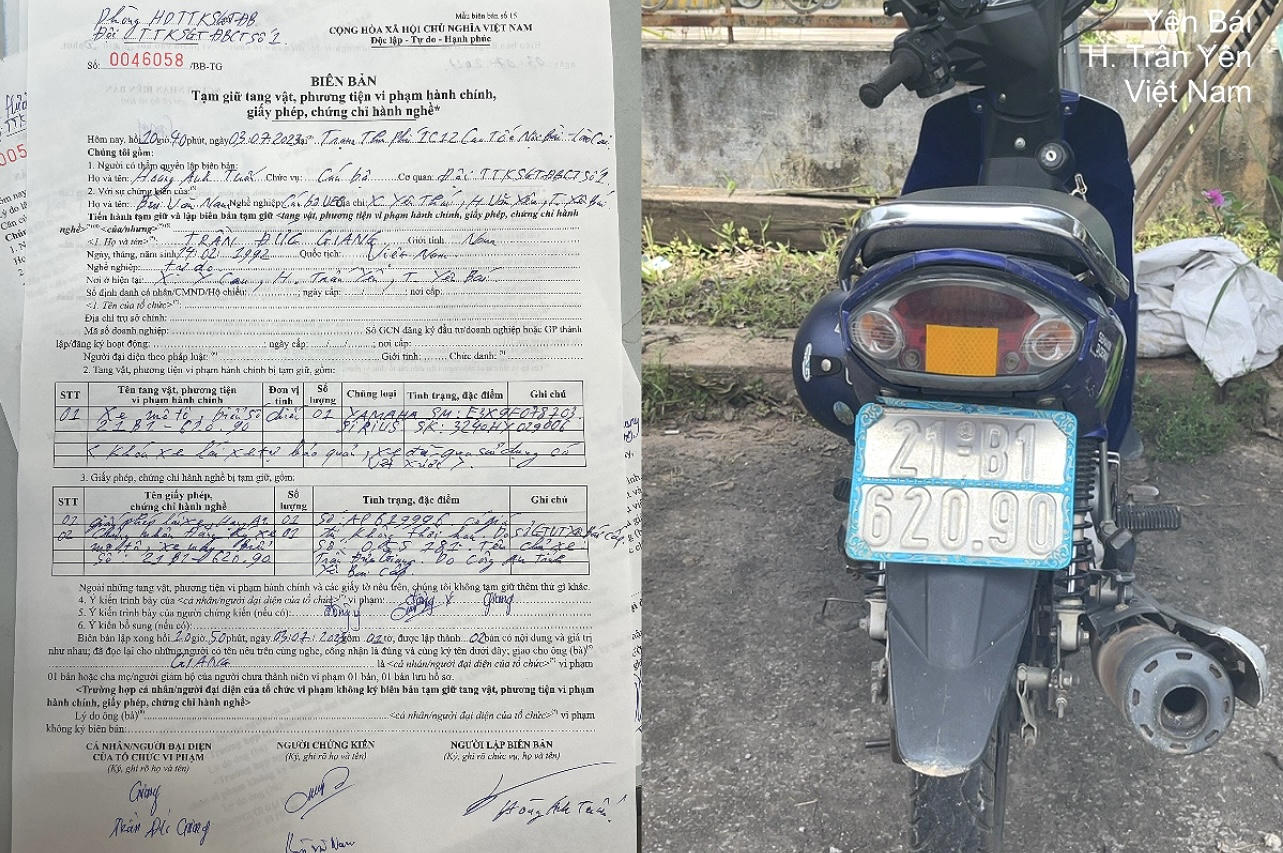 Phòng HD.TTKSGT.ĐB
Đội TTKSGTĐBCTSố 1
Số: 0046058 /BB-TG
Mẫu biên bản số 15
CỘNG HÒA XÃ HỘI CHỦ NGHĨA VIỆT NAM
Độc lập - Tự do - Hạnh phúc
BIÊN BẢN
Tạm giữ tang vật, phương tiện vi phạm hành chính,
giấy phép, chứng chỉ hành nghề*
Hôm nay, hồi 10 giờ 40 phút, ngày 03.07.2023 tại Trạm Thu Phí IC12 Cao Tốc Nội Bài - Lào Cai
Chúng tôi gồm:
1. Người có thẩm quyền lập biên bản:
Họ và tên: Hoàng Anh Chức vụ: Cán bộ Cơ quan: Đội TTKSGTĐBCT Số 1
2. Với sự chứng kiến của:
Họ và tên: Văn Nam Nghề nghiệp: Cán bộ Địa chỉ: X. H. Văn Yên, T. Yên Bái
Tiến hành tạm giữ và lập biên bản tạm giữ <tang vật, phương tiện vi phạm hành chính, giấy phép, chứng chỉ hành
nghề> của/nhưng
<1. Họ và tên>: TRẦN ĐỨC GIANG Giới tính: Nam
Ngày, tháng, năm sinh: 17.02.1992 Quốc tịch: Việt Nam
Nghề nghiệp: tự do
Nơi ở hiện tại: X. Y Can, H. Trấn Yên, T. Yên Bái
Số định danh cá nhân/CMND/Hộ chiếu: ; ngày cấp: / / ; nơi cấp:
<1. Tên của tổ chức>:
Địa chỉ trụ sở chính:
Mã số doanh nghiệp: Số GCN đăng ký đầu tư/doanh nghiệp hoặc GP thành
lập/đăng ký hoạt động: ; ngày cấp: / / ; nơi cấp:
Người đại diện theo pháp luật: Giới tính: Chức danh:
2. Tang vật, phương tiện vi phạm hành chính bị tạm giữ, gồm:
STT Tên tang vật, phương tiện vi phạm hành chính Đơn vị tính Số lượng Chủng loại Tình trạng, đặc điểm Ghi chú
01 Xe mô tô, biển số chiếc 01 YAMAHA SM: E3X9F078703
21B1-620.90 SIRIUS SK: 3240HY029006
xe đã qua sử dụng có
xước
3. Giấy phép, chứng chỉ hành nghề bị tạm giữ, gồm:
STT Tên giấy phép, chứng chỉ hành nghề Số lượng Tình trạng, đặc điểm Ghi chú
01 giấy phép lái xe, Hạng A1 01 Số: AP629996
02 Chứng nhận Đăng ký xe 01 không thời hạn. Do SGTVT Yên Bái cấp.
mô tô, xe máy Biển Tên chủ xe
Số 21B1-620.90 Trần Đức Giang. Do Công an tỉnh
Yên Bái Cấp.
Ngoài những tang vật, phương tiện vi phạm hành chính và các giấy tờ nêu trên, chúng tôi không tạm giữ thêm thứ gì khác.
4. Ý kiến trình bày của <cá nhân/người đại diện của tổ chức> vi phạm: đồng ý Giang
5. Ý kiến trình bày của người chứng kiến (nếu có): đồng ý
6. Ý kiến bổ sung (nếu có):
Biên bản lập xong hồi 10 giờ 50 phút, ngày 03/07/2023 gồm 01 tờ, được lập thành 02 bản có nội dung và giá trị
như nhau; đã đọc lại cho những người có tên nêu trên cùng nghe, công nhận là đúng và cùng ký tên dưới đây; giao cho ông (bà)
GIANG là <cá nhân/người đại diện của tổ chức> vi phạm
01 bản hoặc cha mẹ/người giám hộ của người chưa thành niên vi phạm 01 bản, 01 bản lưu hồ sơ.
<Trường hợp cá nhân/người đại diện của tổ chức vi phạm không ký biên bản tạm giữ tang vật, phương tiện vi phạm
hành chính, giấy phép, chứng chỉ hành nghề>
Lý do ông (bà) <cá nhân/người đại diện của tổ chức> vi phạm
không ký biên bản:
CÁ NHÂN/NGƯỜI ĐẠI DIỆN CỦA TỔ CHỨC VI PHẠM
(Ký, ghi rõ họ và tên)
NGƯỜI CHỨNG KIẾN
(Ký, ghi rõ họ và tên)
NGƯỜI LẬP BIÊN BẢN
(Ký, ghi rõ chức vụ, họ và tên)
Giang
Trần Đức Giang
Yên Bái
H. Trấn Yên
Việt Nam
21-B1
620.90